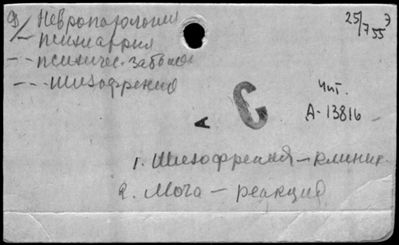 Ф/ Невропатология
– психиатрия
– – психичес. забол
– – – шизофрения
25/755 Э
Чит.
А-13816
А
С
1. Шизофрения – клиник.
2. Моча – реакция